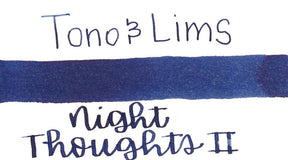 Tono & Lims
Night
Thoughts II